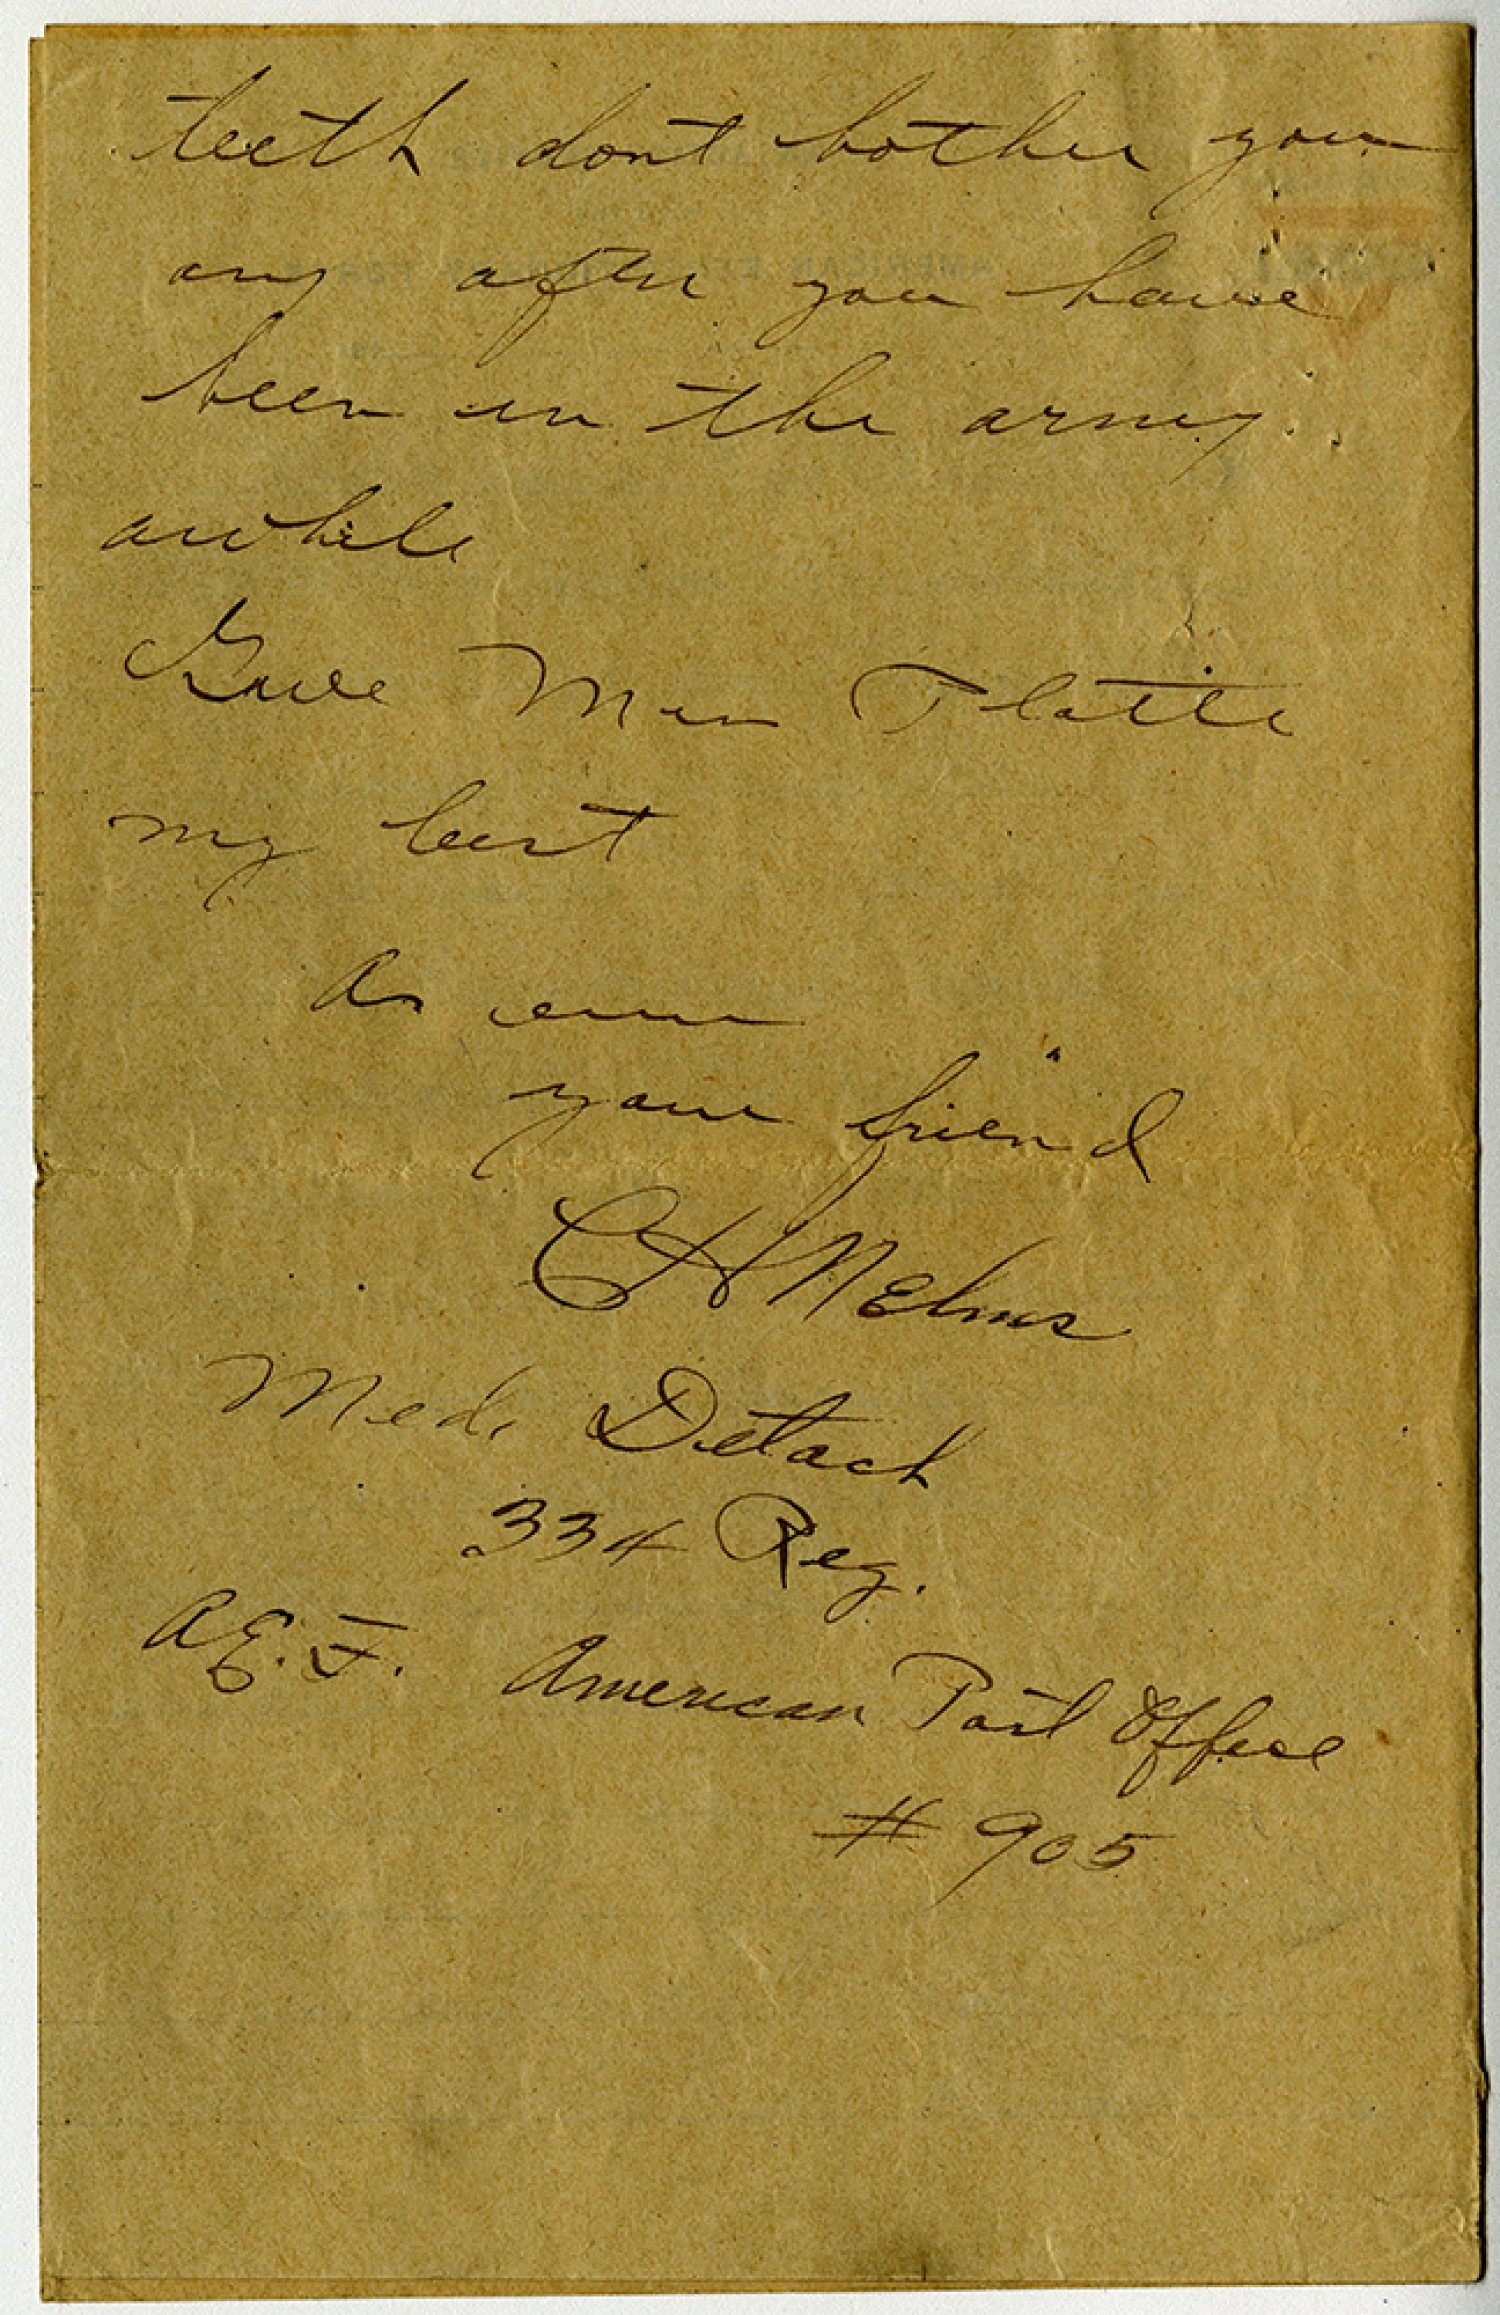 teeth dont bother you
any after you have
been in the army.
awhile
Give Platte
my best
As ever
your friend
CH Nelms
Med. Detach
334 Reg.
A.E.F. American Post Office
# 905
AMERICAN